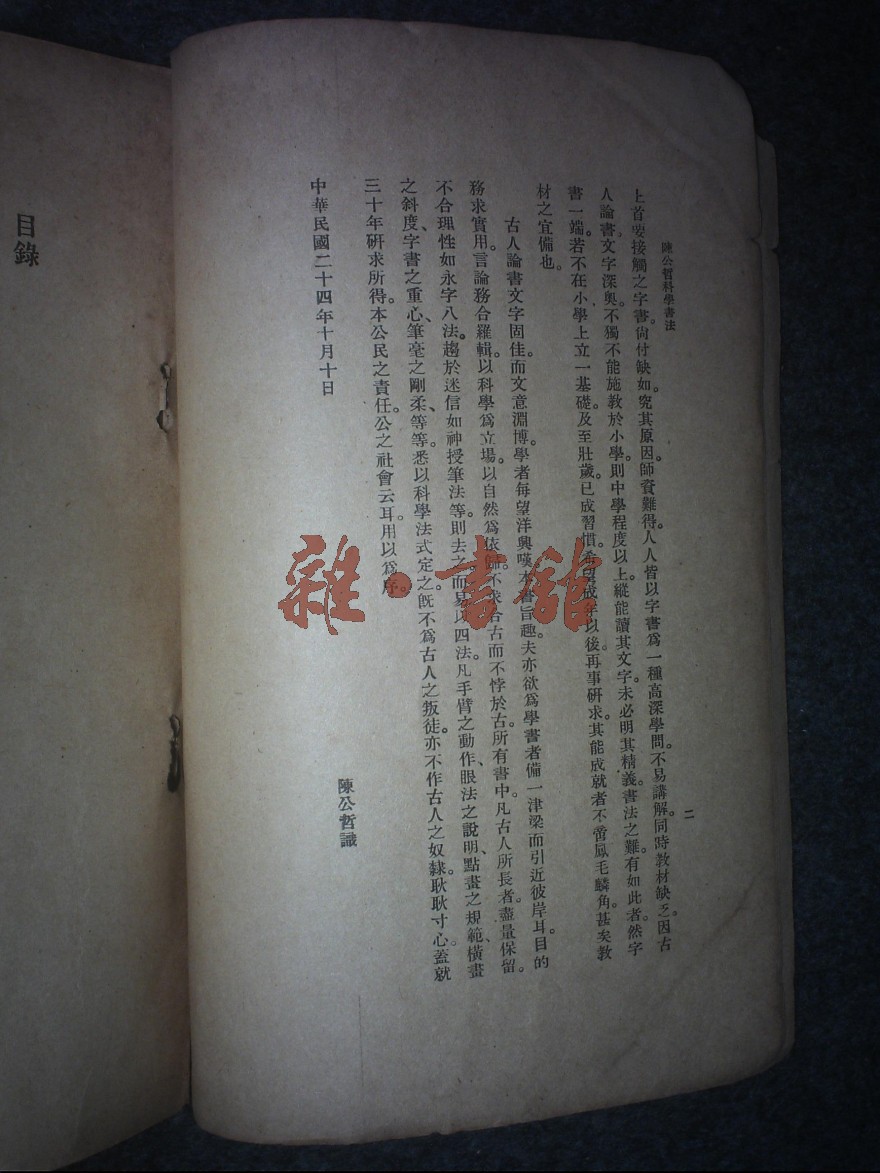 陳公哲科學書法
二
上首要接觸之字書。尙付缺如。究其原因。師資難得。人人皆以字書爲一種高深學問。不易講解。同時教材缺乏。因古
人論書。文字深奥。不獨不能施教於小學。則中學程度以上。縱能讀其文字。未必明其精義。書法之難。有如此者。然字
書一端。若不在小學上立一基礎。及至壯歲。已成習慣。希望成年以後。再事研求。其能成就者。不啻鳳毛麟角。甚矣教
材之宜備也。
古人論書。文字固佳。而文意淵博。學者每望洋興嘆。本書旨趣。夫亦欲爲學書者備一津梁而引近彼岸耳。目的
務求實用。言論務合羅輯。以科學爲立場。以自然爲依歸。不求合古而不悖於古。所有書中。凡古人所長者。盡量保留。
不合理性如永字八法。趨於迷信如神授筆法等。則去之。而易以四法。凡手臂之動作、眼法之說明、點畫之規範、橫畫
之斜度、字書之重心、筆毫之剛柔、等等。悉以科學法式定之。旣不爲古人之叛徒。亦不作古人之奴隸。耿耿寸心。蓋就
三十年研求所得。本公民之責任。公之社會云耳。用以爲序。
中華民國二十四年十月十日
陳公哲識
目錄
雜·書館